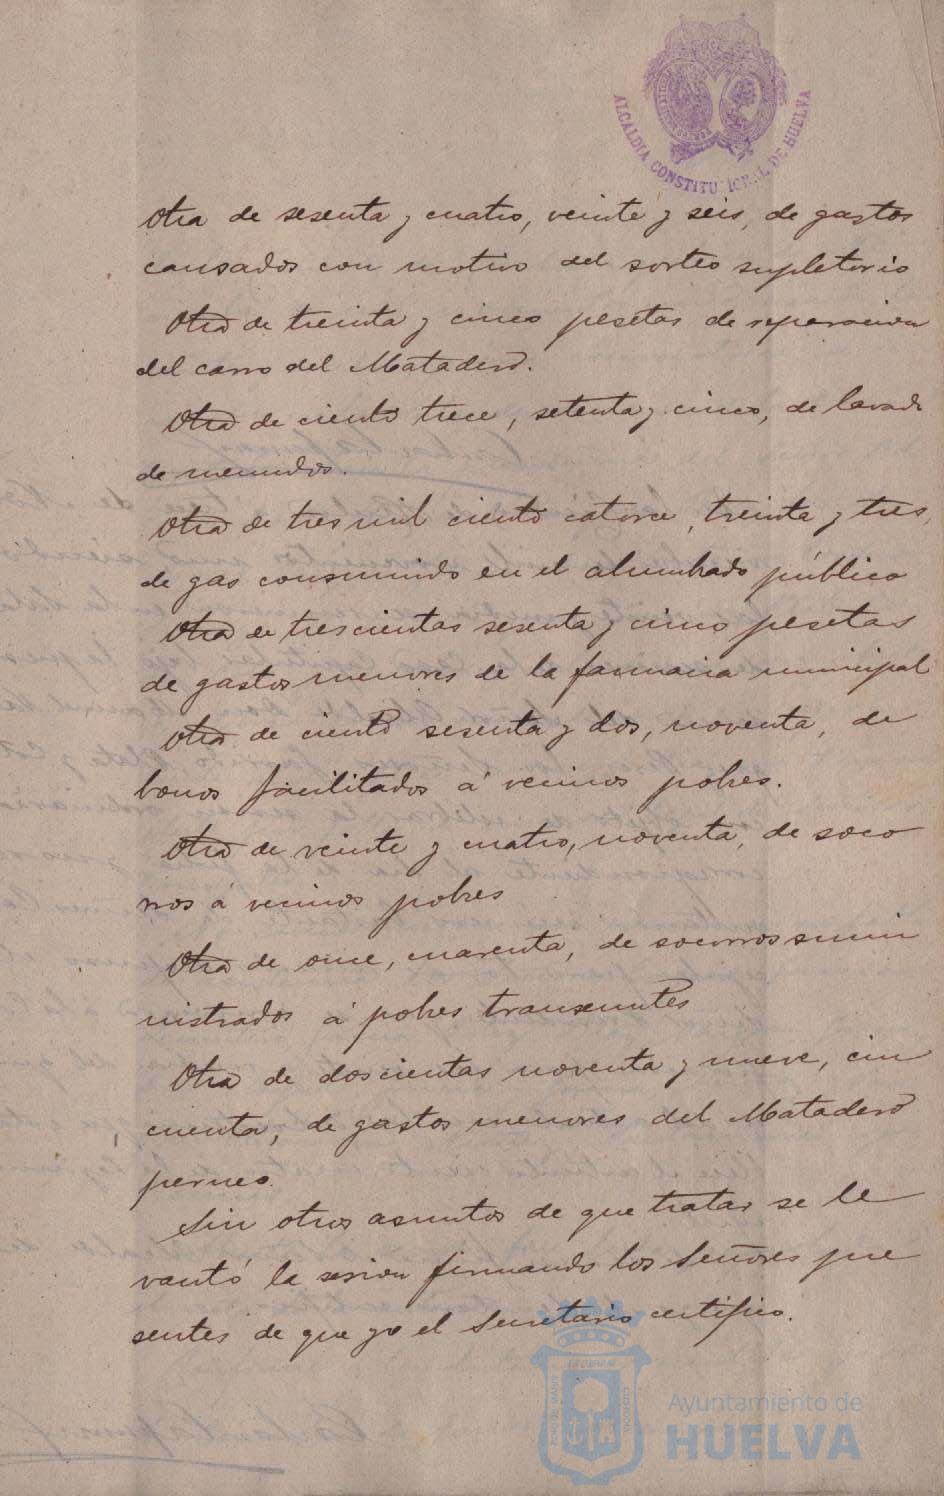 ALCALDIA CONSTITUCIONAL DE HUELVA
Otra de sesenta y cuatro, veinte y seis, de gastos
causados con motivo del sorteo supletorio
Otra de treinta y cinco pesetas de reparacion
del carro del Matadero.
Otra de ciento trece, setenta y cinco, de lavado
de menudos.
Otra de tres mil ciento catorce, treinta y tres,
de gas consumido en el alumbrado público
Otra de trescientas sesenta y cinco pesetas
de gastos menores de la farmacia municipal
Otra de ciento sesenta y dos, noventa, de
bonos facilitados á vecinos pobres.
Otra de veinte y cuatro, noventa, de soco
rros á vecinos pobres
Otra de once, cuarenta, de socorros sumi
nistrados á pobres transeuntes
Otra de doscientas noventa y nueve, cin
cuenta, de gastos menores del Matadero
perneo.
Sin otros asuntos de que tratar se le
vantó la sesion firmando los Señores pre
sentes de que yo el Secretario certifico.
Ayuntamiento de
HUELVA